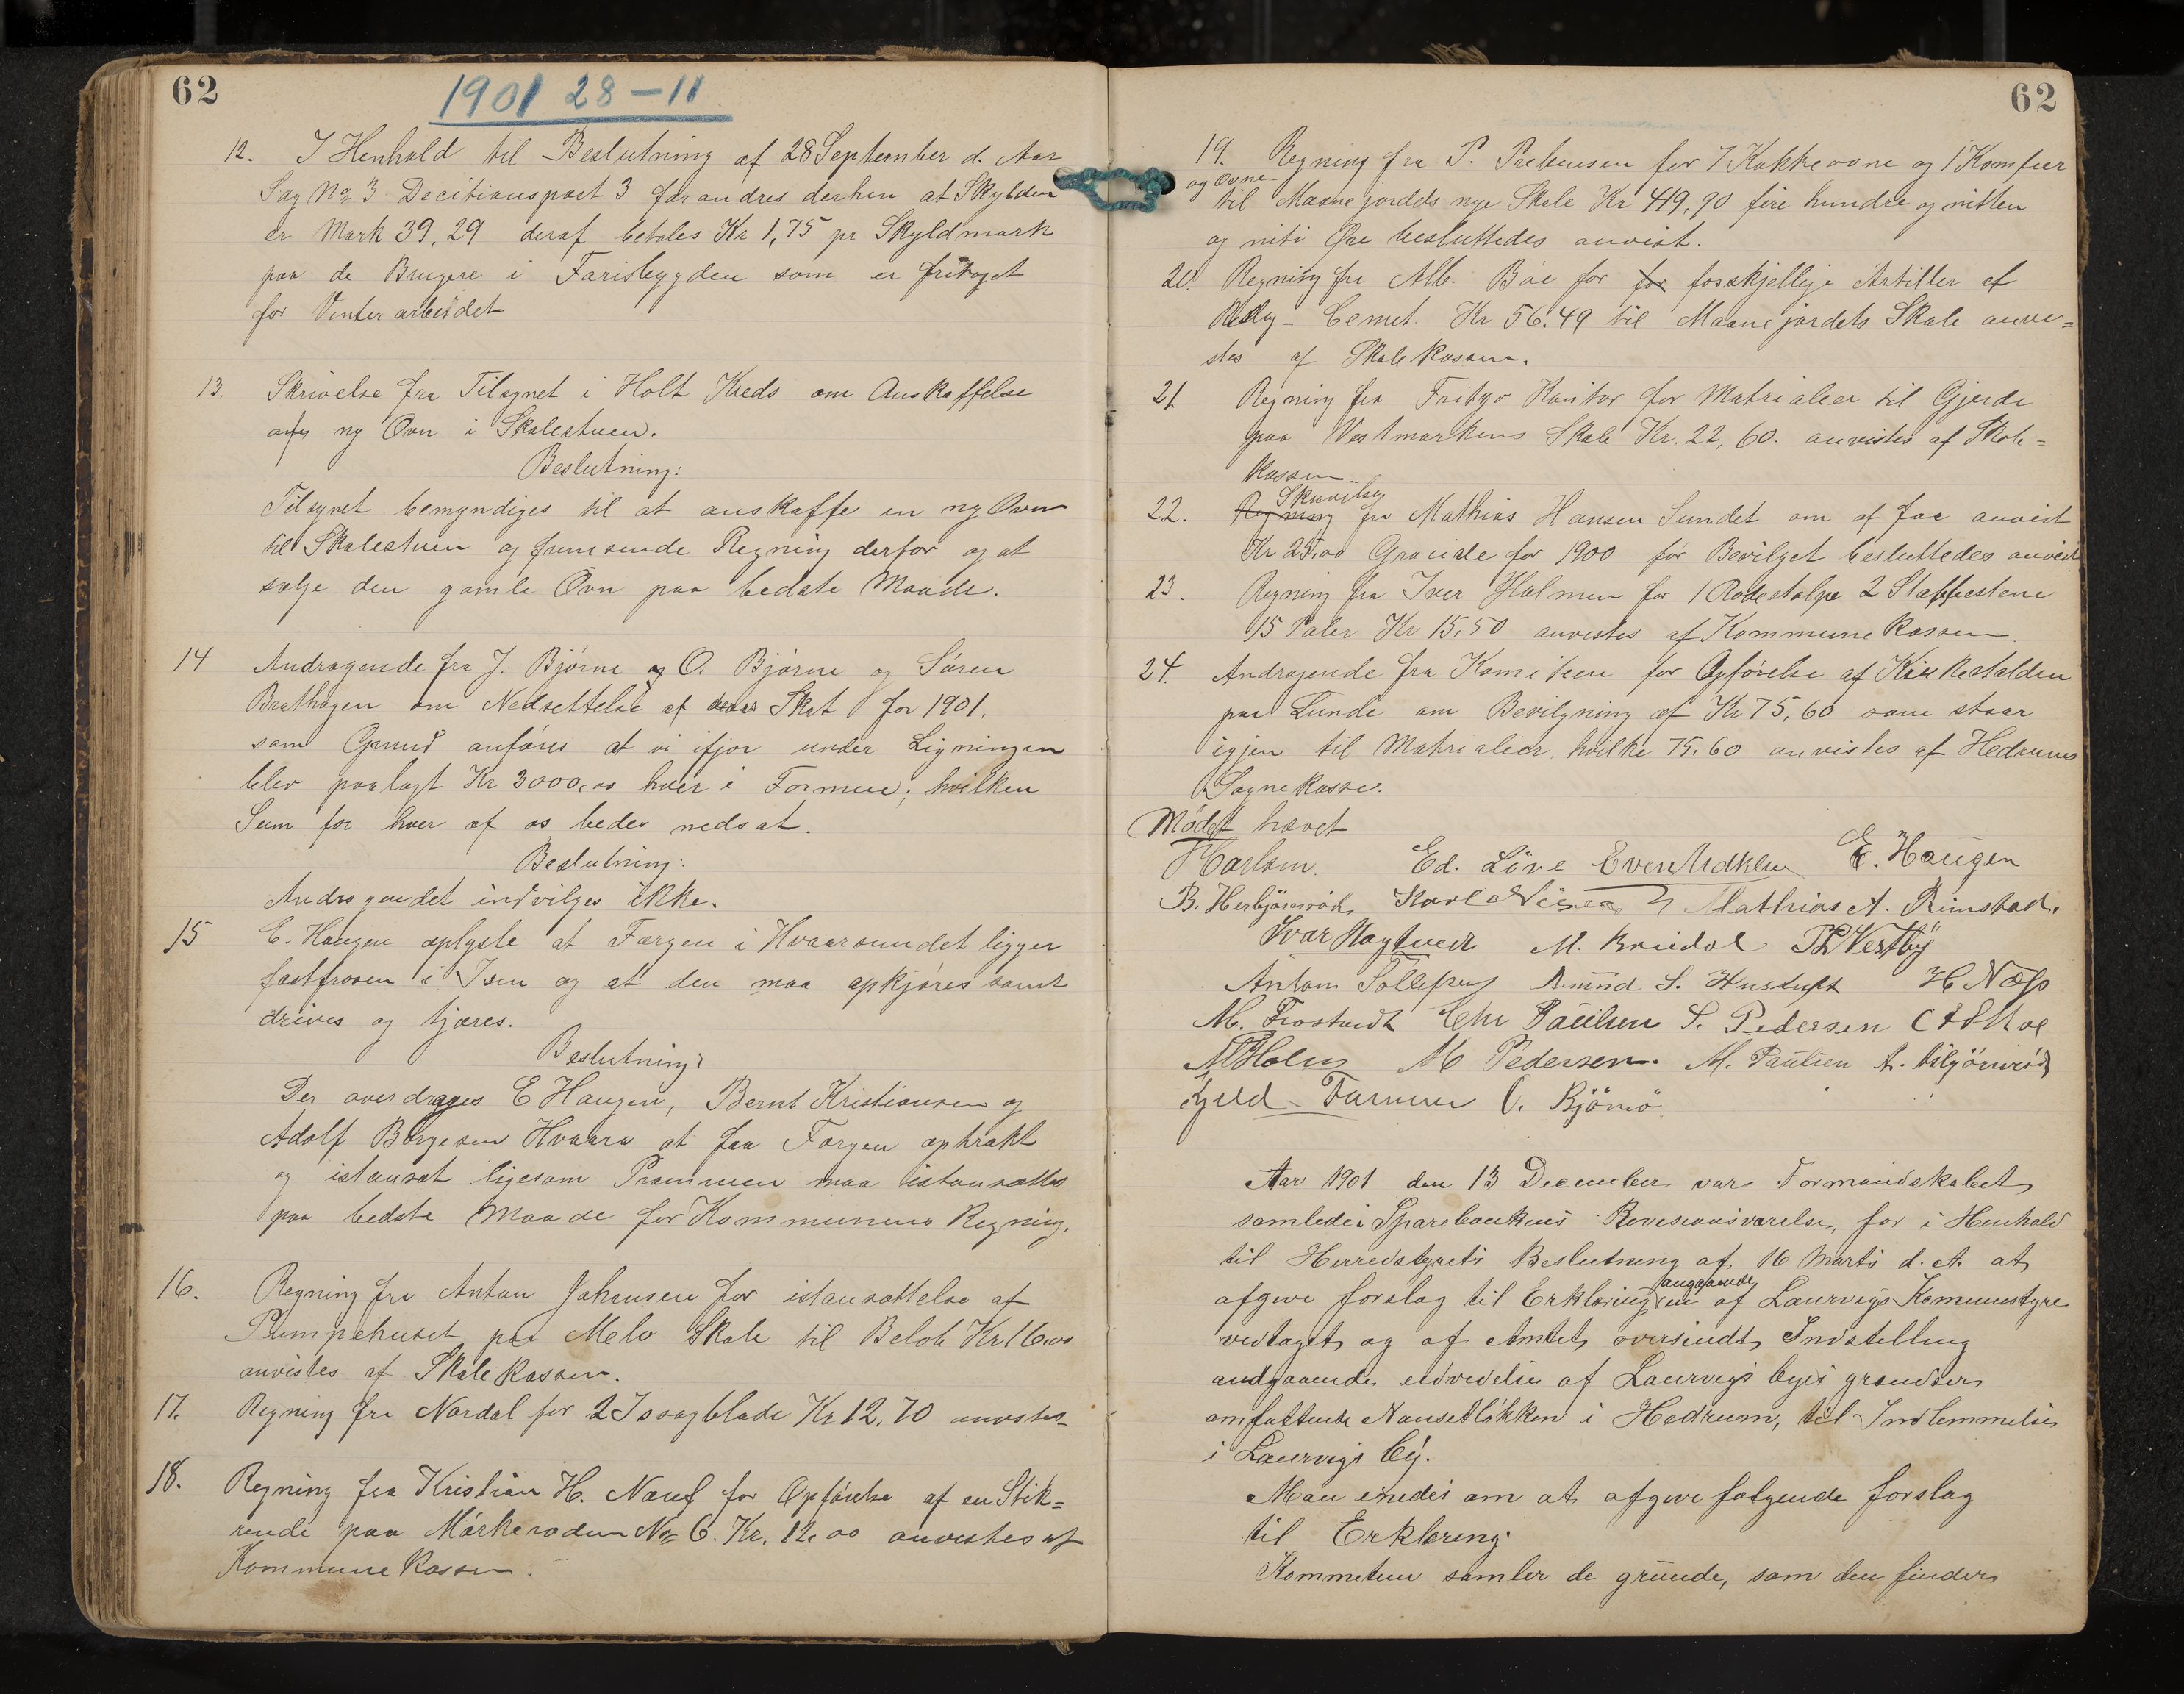 62
1901 28-11
12. I Henhold til Beslutning af 28 September d. Aar
Sag No 3 Decitionspost 3 forandres derhen at Skylden
er Mark 39,29 deraf betales Kr 1,75 pr Skyldmark
paa de Brugere i Farisbygden som er fritaget
for Vinterarbeidet
13. Skrivelse fra Tilsynet i Holt Kreds om Anskaffelse
af ny Ovn i Skolestuen.
Beslutning:
Tilsynet bemyndiges til at anskaffe en ny Ovn
til Skolestuen og fremsende Regning derfor og at
sælge den gamle Ovn paa bedste Maade.
14 Andragende fra J. Bjørne og O. Bjørne og Søren
Braathagen om Nedsettelse af deres Skat for 1901.
som Grund anføres at vi ifjor under Ligningen
blev paalagt Kr 3000,00 hver i Formue; hvilken
Sum for hver af os bedes nedsat.
Beslutning:
Andragendet indvilges ikke.
15 E. Haugen oplyste at Færgen i Hvaarsundet ligger
fastfrosen i Isen og at den maa opkjøres samt
drives og tjæres.
Beslutning:
Der overdrages E Haugen, Bernt Kristiansen og
Adolf Børgesen Hvaara at faa Færgen optrakt
og istansat ligesom Prammen maa istansættes
paa bedste Maade for Kommunens Regning.
16. Regning fra Anton Johansen for istansættelse af
Pumpehuset paa Melø Skole til Beløb Kr 16,00
anvistes af Skolekassen.
17. Regning fra Nordal for 2 Issagblade Kr 12,70 anvistes
18. Regning fra Kristian H. Nauf for Opførelse af en Stik=
rende paa Mørkeroden No 6. Kr. 12,00 anvistes af
Kommunekassen.
62
19. Regning fra P. Prebensen for 7 Kakkeovne og 1 Komfur
og Ovne til Maanejordets nye Skole Kr 419,90 fire hundre og nitten
og niti Øre besluttedes anvist.
20. Regning fra Alb. Bøe for for forskjellige Artikler af
Cement. Kr 56.49 til Maanejordets Skole anvi=
stes af Skolekassen.
21 Regning fra Fritzø Kontor for Matrialier til Gjerde
paa Vestmarkens Skole Kr. 22,60. anvistes af Skole=
kassen.
22. Regning Skrivelse fra Mathias Hansen Sundet om at faa anvist
Kr 25,00 Graciale for 1900 før Bevilget besluttedes anvist
23. Regning fra Iver Holmen for 1 Rodestolpe 2 Stabbestene
15 Pæler Kr 15,50 anvistes af Kommunekassen
24. Andragende fra Komiteen for Opførelse af Kirkestalden
paa Lunde om Bevilgning af Kr 75,60 som staar
igjen til Matrialier. hvilke 75.60 anvistes af Hedrums
Sognekasse.
Mødet hævet
Carlsen. Ed. Löve Even E. Haugen
Karl Nilsen Mathias A. Rimstad.
Ivar Hagtvedt M. Bredal Th Vestby
Anton Tollefsen Amund S. H Næss
M. Frostvedt Chr Paulsen S. Pedersen
M Holm M Pedersen. M. Paulsen
O. Björnö
Aar 1901 den 13 December var Formandskabet
samlede i Sparebankens Revisionsværelse, for i Henhold
til Herredstyrets Beslutning af 16 Marts d. A. at
afgive forslag til Erklæring angaaende en af Laurvigs Komunestyre
vedtaget og af Amtet oversendt Indstilling
andgaaende udvidelse af Laurvigs byes grændser
omfattende Nansetløkken i Hedrum, til Indlemmelse
i Laurvigs By.
Man enedes om at afgive følgende forslag
til Erklæring.
Kommeteen samler de grunde, som den finder